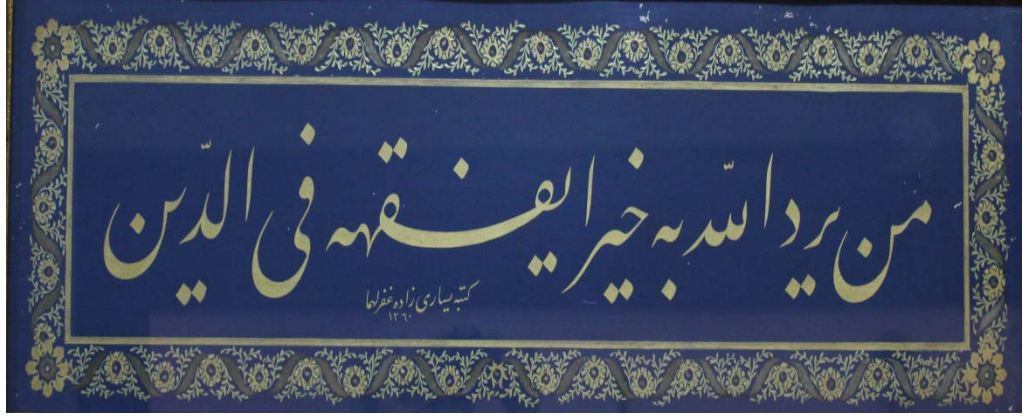 من يرد الله به خيرا يفقهه فى الدّين
كتبه يسارى زاده غفر لهما
١٢٦٠